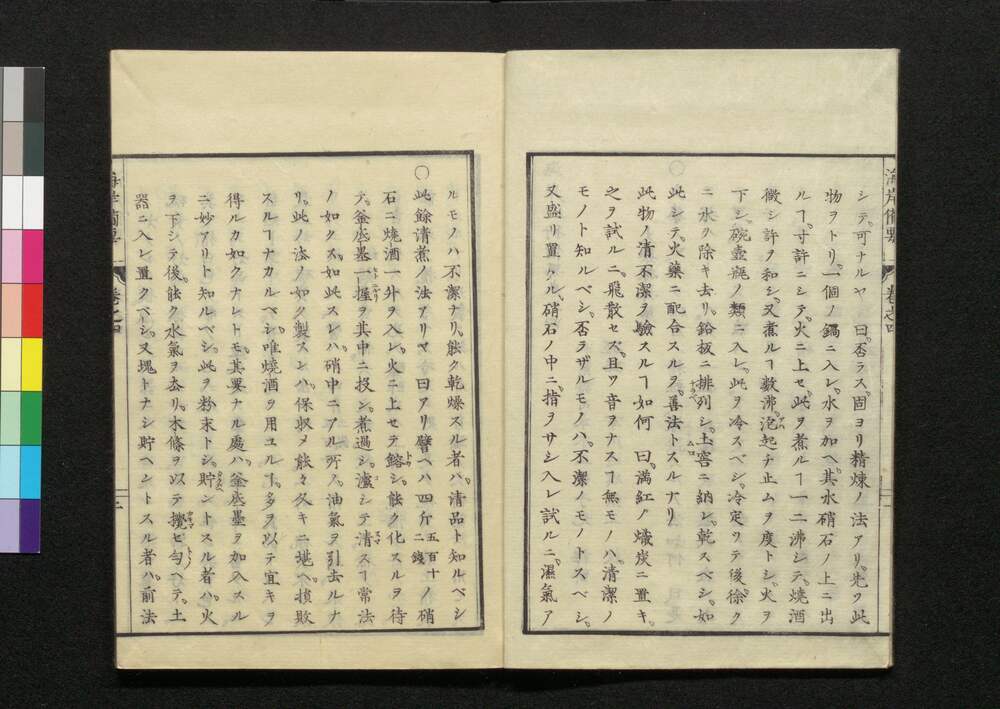 海岸備要
卷之四
シテ可ナルヤ 曰否ラス固ヨリ精煉ノ法アリ先ツ此
物ヲトリ一個ノ鐲ニ入レ水ヲ加ヘ其水硝石ノ上ニ出
ルヿ寸許ニシテ火ニ上セ此ヲ煮ルヿ一二沸シテ燒酒
徴シ許ヲ和シ又煮ルヿ數沸泡起チ止ムヲ度トシ火ヲ
下シ碗壺瓶ノ類ニ入レ此ヲ冷スベシ冷定ツテ後徐ク
ニ水ヲ除キ去リ鉛板ニ排列シ土窖ニ納レ乾スベシ如
此シテ火藥ニ配合スルヲ善法トスルナリ
○此物ノ清不潔ヲ驗スルヿ如何 曰滿紅ノ熾炭ニ置キ
之ヲ試ルニ飛散セズ且ツ音ヲナスヿ無モノハ清潔ノ
モノト知ルベシ否ラザルモノハ不潔ノモノトスベシ
又盛リ置クル硝石ノ中ニ指ヲサシ入レ試ルニ濕氣ア
ルモノハ不潔ナリ能ク乾燥スル者ハ清品ト知ルベシ
○此餘清煮ノ法アリヤ 曰アリ譬ヘハ四斤五百十二錢ノ硝
石ニ燒酒一升ヲ入レ火ニ上セテ鎔シ能ク化スルヲ待
テ釜烝墨一握ヲ其中ニ投シ煮過シ濾シテ清スヿ常法
ノ如クス如此スレハ硝中ニアル所ノ油氣ヲ引去ルナ
リ此ノ法ノ如ク製スレハ保收メ能々久キニ堪ヘ損敗
スルヿナカルベシ唯燒酒ヲ用ユルヿ多ヲ以テ宜キヲ
得ルカ如クナレトモ其要ナル處ハ釜烝墨ヲ加入スル
ニ妙アリト知ルベシ此ヲ粉末トシ貯ントスル者ハ火
ヲ下シテ後能ク水氣ヲ去リ木條ヲ以テ攪セ勻ヘテ土
器ニ入レ置クベシ又塊トナシ貯ヘントスル者ハ前法
海岸備要
卷之四